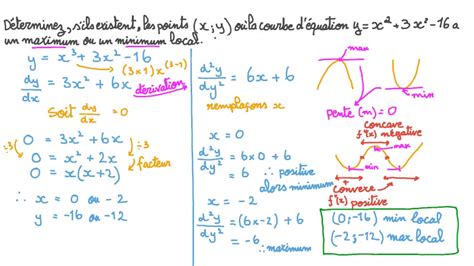 Déterminez, s'ils existent, les points (x;y) où la courbe d'équation y = x² + 3x² - 16 a
un maximum ou un minimum local.
y = x³ + 3x² - 16
(3×1)x^(3-1)
dy/dx = 3x² + 6x
dérivation
Soit dy/dx = 0
÷3 0 = 3x² + 6x ÷3
0 = x² + 2x
facteur
0 = x(x + 2)
∴ x = 0 ou -2
y = -16 ou -12
d²y/dy² = 6x + 6
remplaçons x
x = 0
d²y/dy² = 6×0 + 6
= 6 ∴ positive
alors minimum
x = -2
d²y/dy² = (6×-2) + 6
= -6 ∴ maximum
max
min
pente (m) = 0
Concave
f"(x) négative
max
min
Convexe
f"(x) positive
(0;-16) min local
(-2;-12) max local